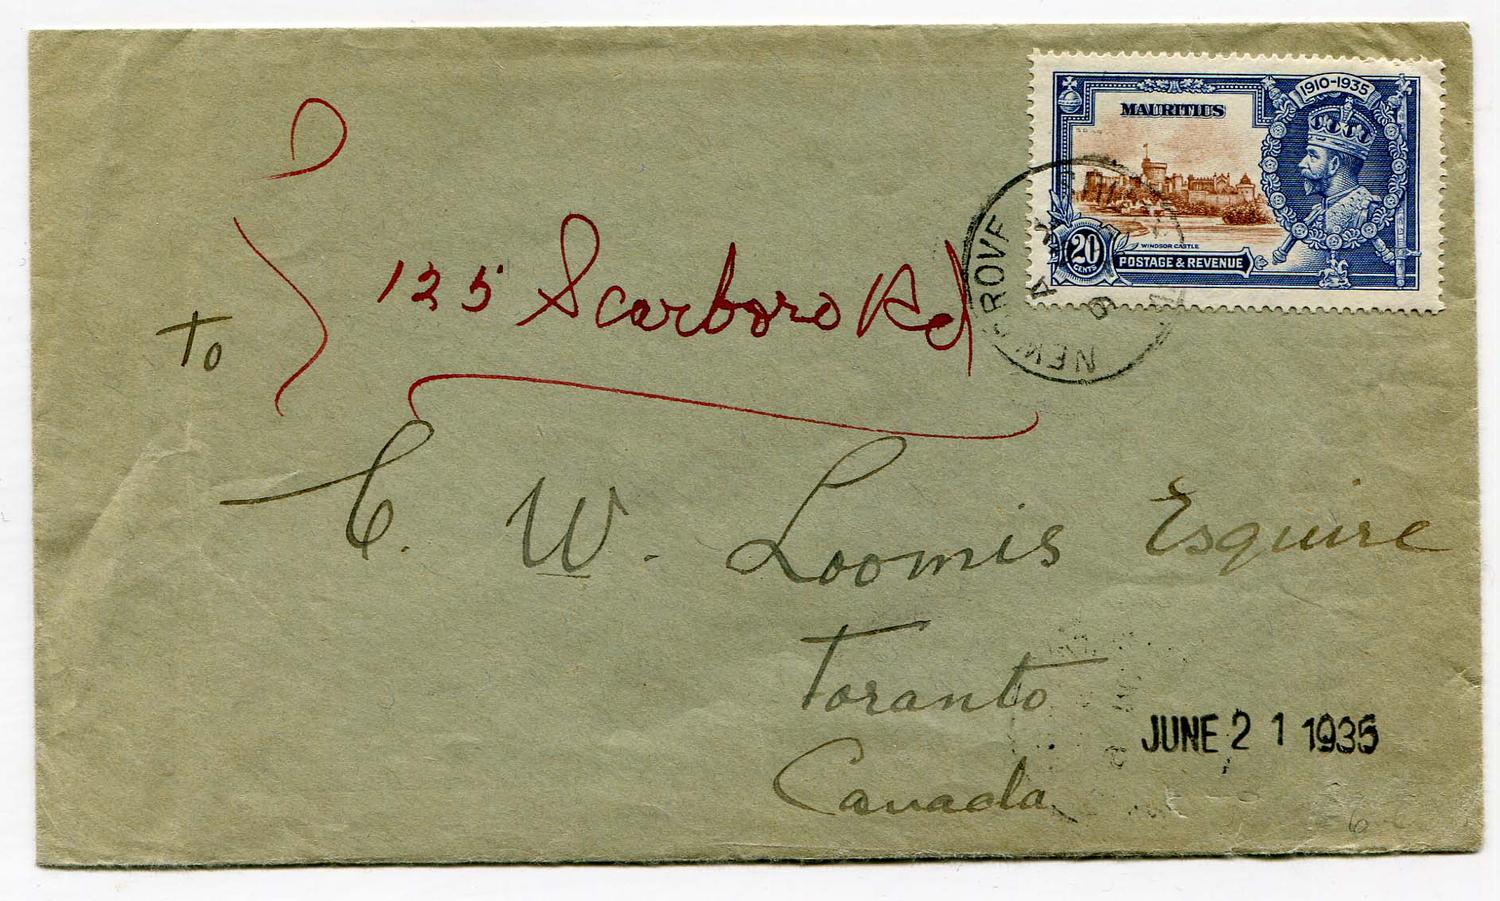 1910-1935
MAURITIUS
WINDSOR CASTLE
20
CENTS
POSTAGE & REVENUE
NEW GROVE
125 Scarboro Rd
To
C. W. Loomis Esquire
Toranto
Canada
JUNE 21 1935